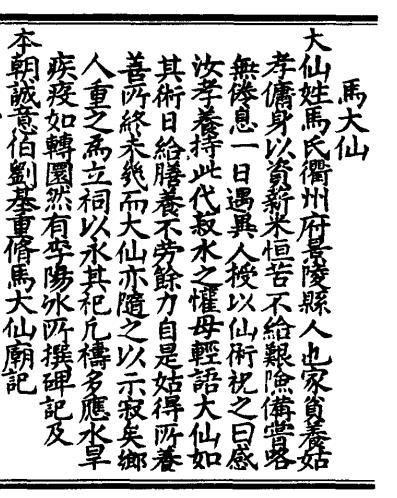 馬大仙
大仙姓馬氏衢州府景陵縣人也家貧養姑
孝傭身以資薪米恒苦不給艱險備嘗略
無倦息一日遇異人授以仙術祝之曰感
汝孝養持此代菽水之懽毋輕語大仙如
其術日給膳養不勞餘力自是姑得所養
善所終未幾而大仙亦隨之以示寂矣鄉
人重之為立祠以永其祀凡禱多應水旱
疾疫如轉圜然有李陽冰所撰碑記及
本朝誠意伯劉基重脩馬大仙廟記